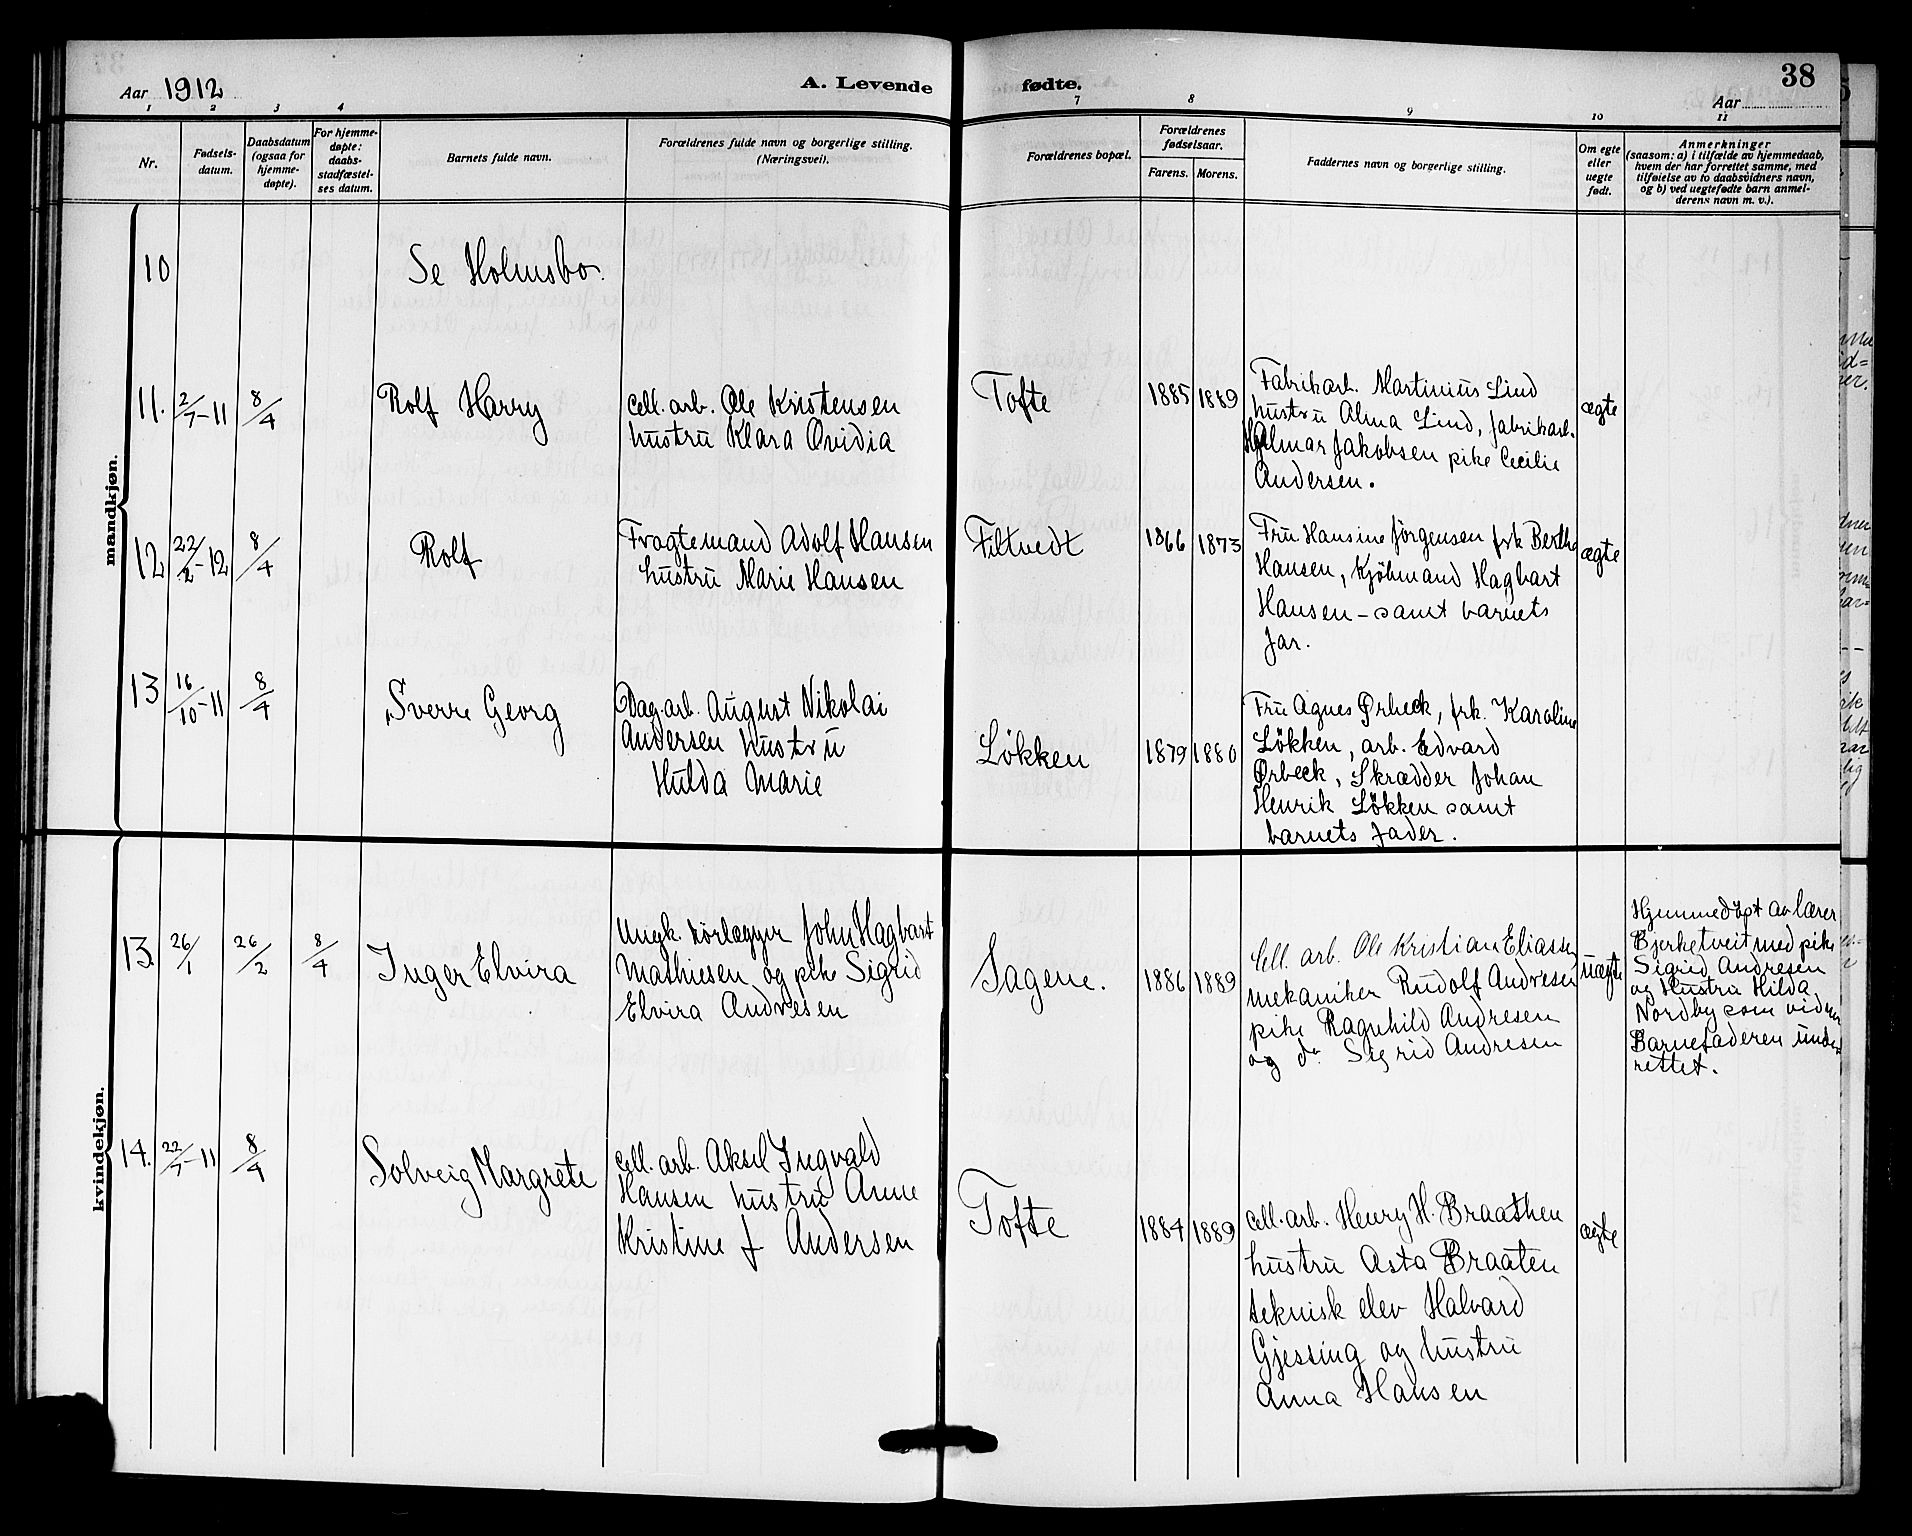 Aar 1912
A. Levende fødte.
38
Aar
1 2 3 4 7 8 9 10 11
Nr.
Fødsels-
datum.
Daabsdatum
(ogsaa for
hjemme-
døpte).
For hjemme-
døpte:
daabs-
stadfæstel-
ses datum.
Barnets fulde navn.
Forældrenes fulde navn og borgerlige stilling.
(Næringsvei).
Forældrenes bopæl.
Forældrenes
fødselsaar.
Farens. Morens.
Faddernes navn og borgerlige stilling.
Om egte
eller
uegte
født.
Anmerkninger
(saasom: a) i tilfælde av hjemmedaab,
hvem der har forrettet samme, med
tilføielse av to daabsvidners navn,
og b) ved uegtefødte barn anmel-
derens navn m. v.).
mandkjøn.
10 Se Holmsbo.
11. 2/7-11 8/4 Rolf Harry
cell. arb. Ole Kristensen
hustru Klara Ovidia
Tofte 1885 1889
Fabrikarb. Martinius Lind
hustru Alma Lind, fabrikarb.
Hjalmar Jakobsen pike Cecilie
Andersen.
ægte
12 22/2-12 8/4 Rolf
Fragtemand Adolf Hansen
hustru Marie Hansen
Filtvedt 1866 1873
Fru Hansine Jørgensen frk Berthe
Hansen, Kjøbmand Hagbart
Hansen - samt barnets
far.
ægte
13 16/10-11 8/4 Sverre Georg
Dag.arb. August Nikolai
Andersen hustru
Hulda Marie
Løkken 1879 1880
Fru Agnes Ørbeck, frk. Karoline
Løkken, arb. Edvard
Ørbeck, Skrædder Johan
Henrik Løkken samt
barnets fader.
kvindekjøn.
13. 26/1 26/2 8/4 Inger Elvira
Ungk. rørlægger John Hagbart
Mathiesen og pike Sigrid
Elvira Andresen
Sagene. 1886 1889
Cell. arb. Ole Kristian Eliassen
mekaniker Rudolf Andresen
pike Ragnhild Andresen
og do Sigrid Andresen
uægte
Hjemmedøpt av lærer
Bjerketveit med pike
Sigrid Andresen
og Hustru Hilda
Nordby som vidner
Barnefaderen under
rettet.
14. 22/7-11 8/4 Solveig Margrete
cell. arb. Aksel Ingvald
Hansen hustru Anne
Kristine f Andersen
Tofte 1884 1889
cell. arb. Henry H. Braathen
hustru Asta Braaten
teknisk elev Halvard
Gjessing og hustru
Anna Hansen
ægte